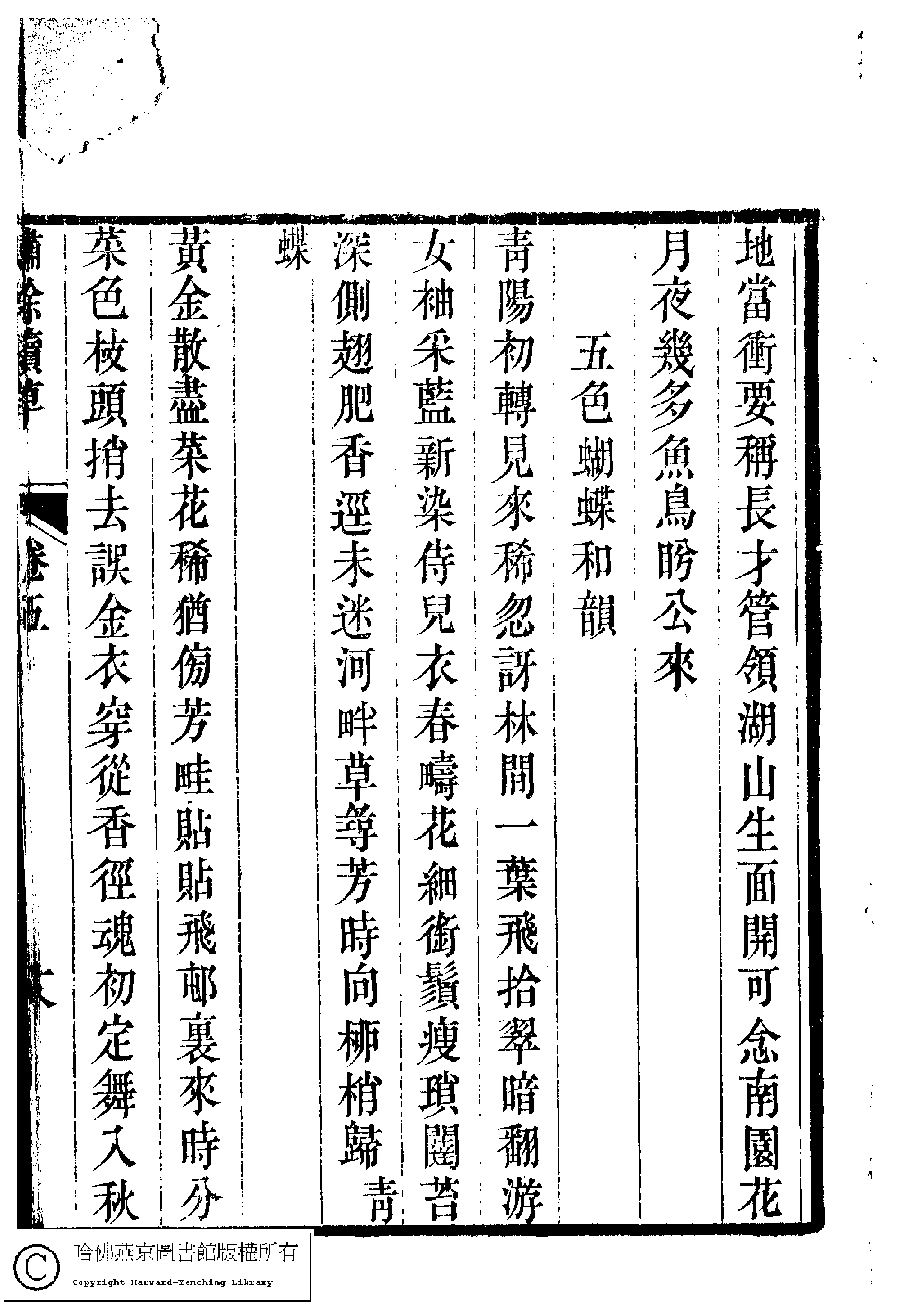 地當衝要稱長才管領湖山生面開可念南園花
月夜幾多魚鳥盼公來
五色蝴蝶和韻
青陽初轉見來稀忽訝林間一葉飛拾翠暗翻游
女袖采藍新染侍兒衣春疇花細銜鬚瘦瑣闥苔
深側翅肥香逕未迷河畔草尊芳時向栁梢歸青
蝶
黃金散盡菜花稀猶傍芳畦貼貼飛邨裏來時分
菜色枝頭捎去誤金衣穿從香徑魂初定舞入秋
餘續草
卷五
哈佛燕京圖書館版權所有
Copyright Harvard-Yenching Library